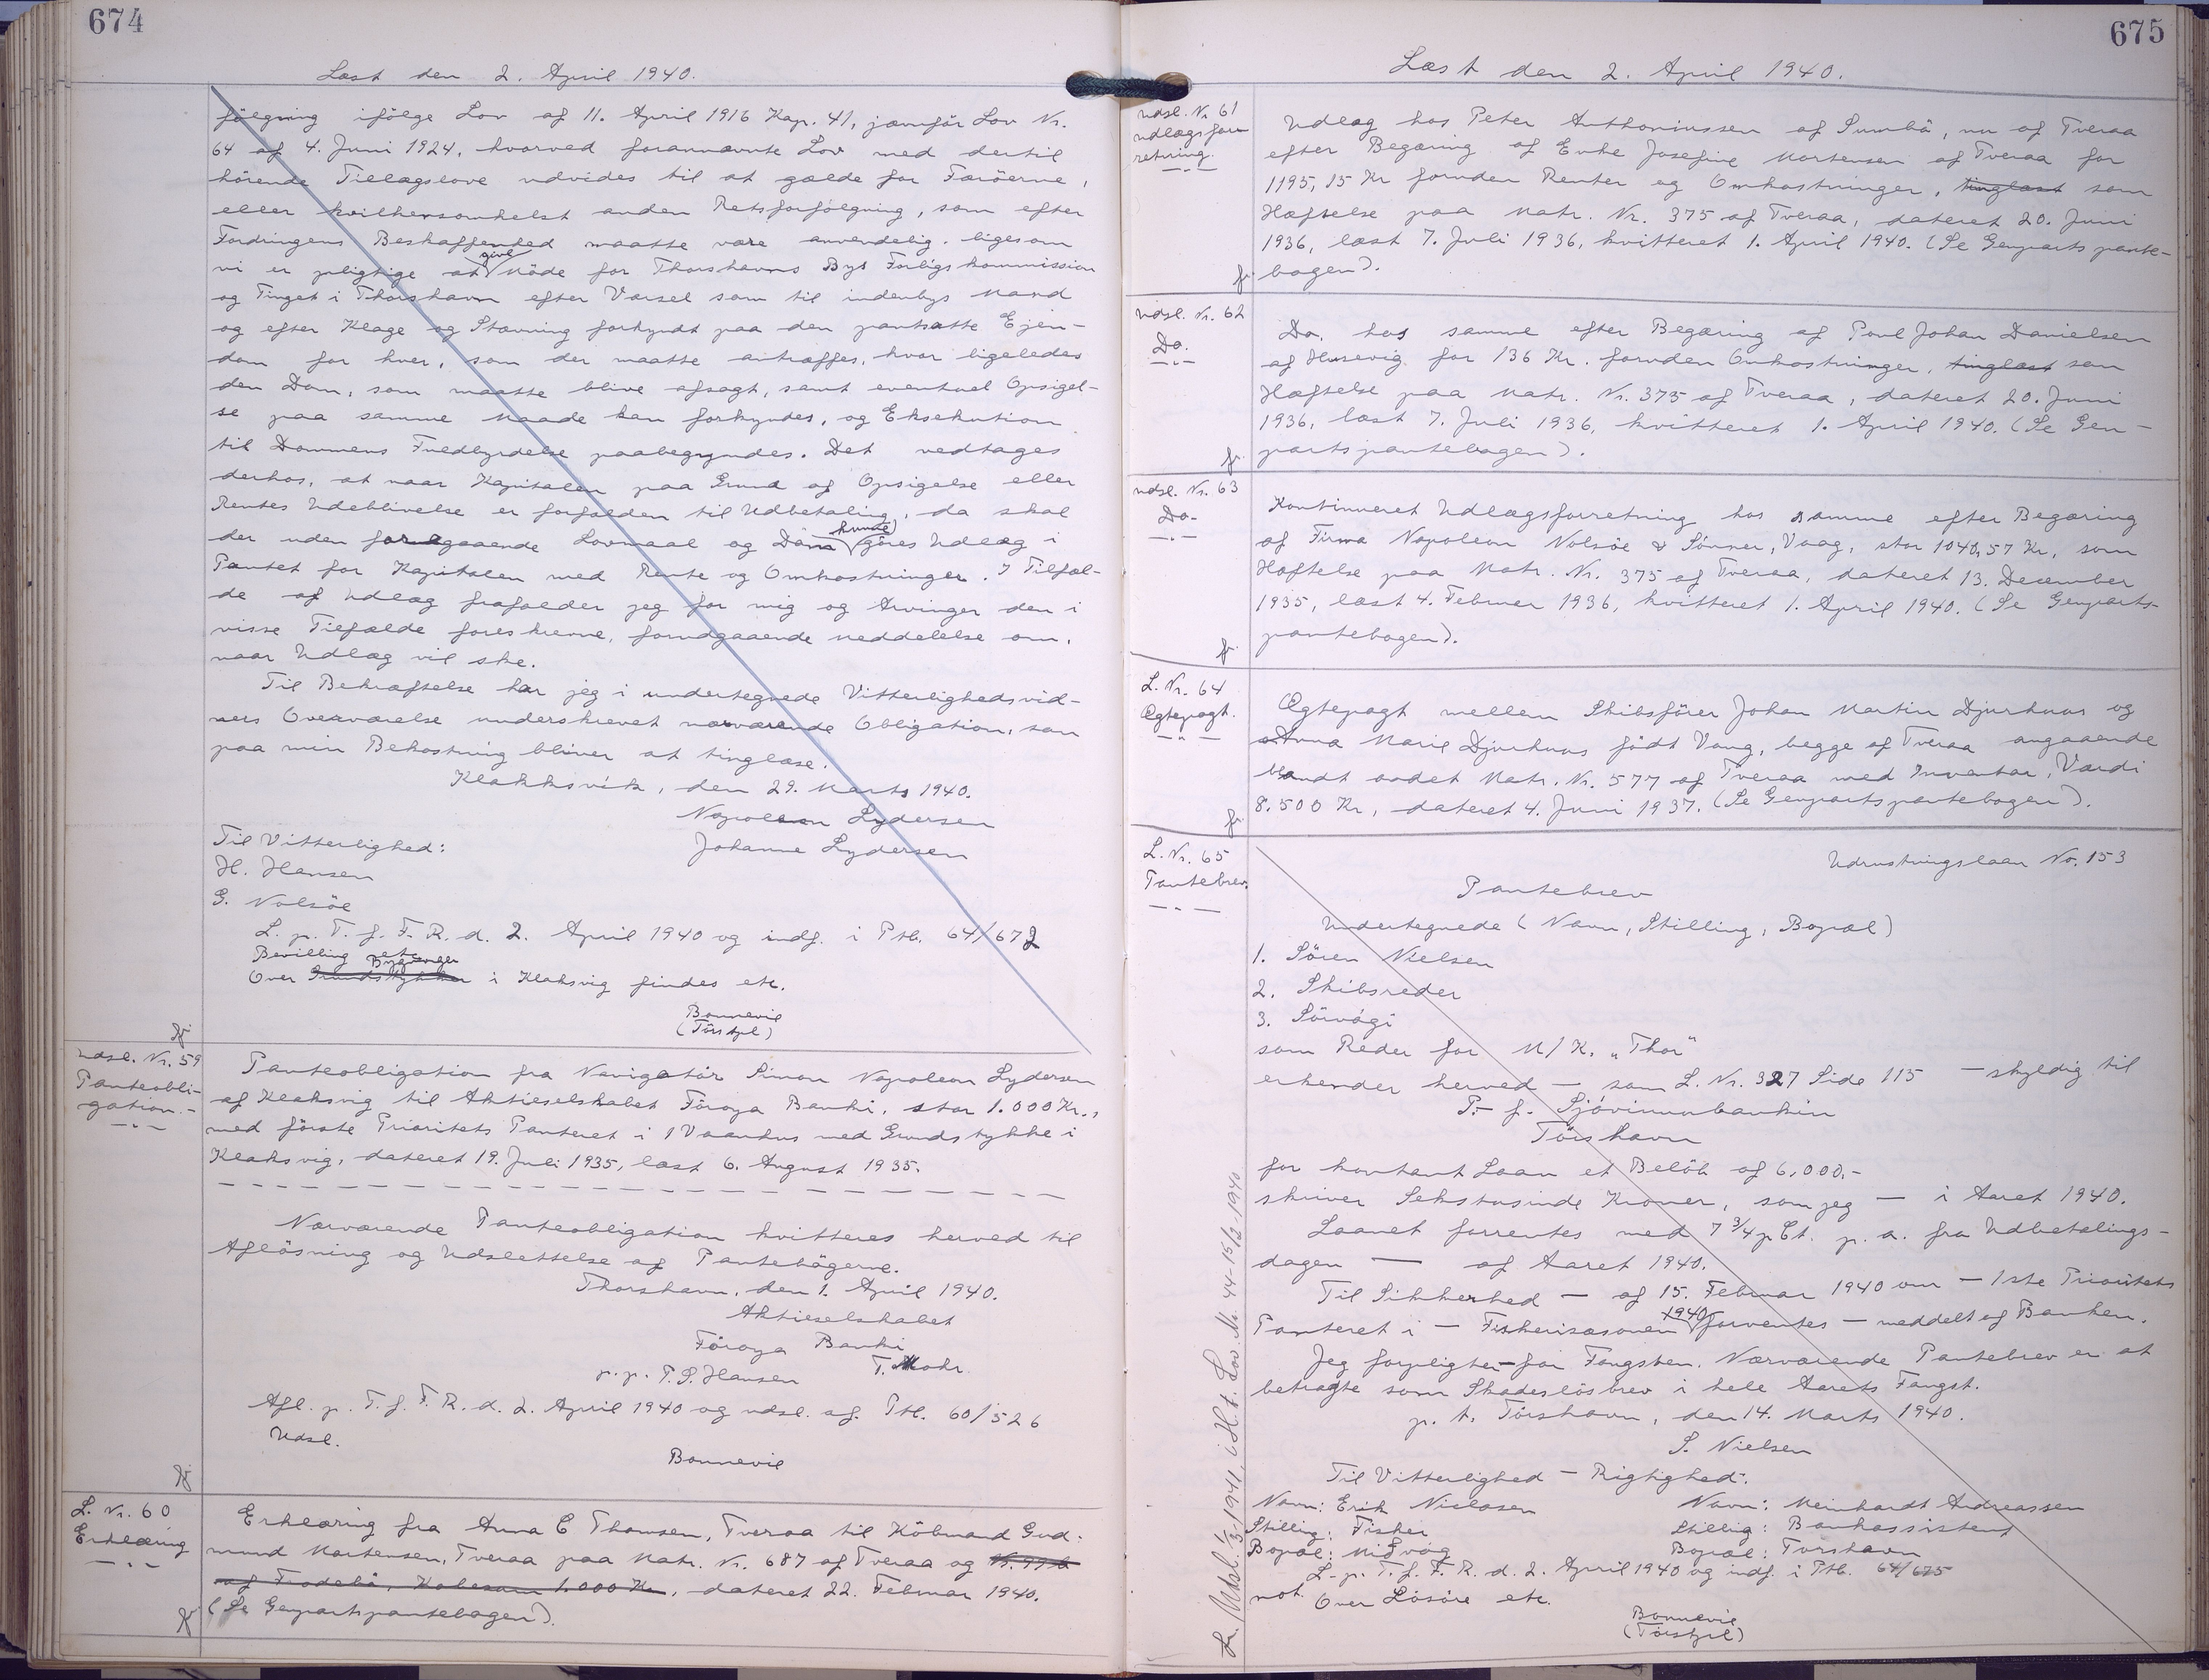 674
Læst den 2. April 1940.
fölgning ifölge Lov af 11. April 1916 Kap. 41, jævnför Lov Nr.
64 af 4. Juni 1924, hvorved forannævnte Lov med dertil
hörende Tillægslove udvides til at gælde for Færöerne,
eller hvilkensomhelst anden Retsforfölgning, som efter
Fordringens Beskaffenhed maatte være anvendelig, ligesom
vi er pligtige at give Möde for Thorshavns Bys Forligskommission
og Tinget i Thorshavn efter Varsel som til indenbys Mand
og efter Klage og Stævning forkyndt paa den pantsatte Ejen-
dom for hver, som der maatte antræffes, hvor ligeledes
den Dom, som maatte blive afsagt, samt eventuel Opsigel-
se paa samme Maade kan forkyndes, og Eksekution
til Dommens Fuldbyrdelse paabegyndes. Det vedtages
derhos, at naar Kapitalen paa Grund af Opsigelse eller
Rentes Udeblivelse er forfalden til Udbetaling, da skal
der uden foregaaende Lovmaal og Dom kunne göres Udlæg i
Pantet for Kapitalen med Rente og Omkostninger. I Tilfæl-
de af Udlæg frafalder jeg for mig og Arvinger den i
visse Tilfælde foreskrevne, forudgaaende Meddelelse om,
naar Udlæg vil ske.
Til Bekræftelse har jeg i undertegnede Vitterlighedsvid-
ners Overværelse underskrevet nærværende Obligation, som
paa min Bekostning bliver at tinglæse.
Klakksvik, den 29. Marts 1940.
Napoleon Lydersen
Til Vitterlighed: Johanne Lydersen
H. Hansen
G. Nolsöe
L. p. T. f. F. R. d. 2. April 1940 og indf. i Ptb. 64/672
Bevilling etc
Over Grundstykker Bygninger i Klaksvig findes etc.
Bonnevie
(Törslpl)
Udsl. Nr. 59
Panteobli-
gation.-
Panteobligation fra Navigatör Simon Napoleon Lydersen
af Klaksvig til Aktieselskabet Föroya Banki, stor 1.000 Kr.,
med förste Prioritets Panteret i 1 Vaanhus med Grundstykke i
Klaksvig, dateret 19. Juli 1935, læst 6. August 1935.
Nærværende Panteobligation kvitteres herved til
Aflösning og Udslettelse af Pantebögerne.
Thorshavn, den 1. April 1940.
Aktieselskabet
Föroya Banki
p.p. P.S. Hansen T. Mohr.
Afl. p. T. f. F. R. d. 2. April 1940 og udsl. af. Ptb. 60/526
Udsl.
Bonnevie
L. Nr. 60
Erklæring
Erklæring fra Anna C Thomsen, Tveraa til Köbmand Gud-
mund Mortensen, Tveraa paa Matr. Nr. 687 af Tveraa og
af Frodebö, Købesum 1.000 Kr, dateret 22. Februar 1940.
(Se Genpartspantebogen).
675
Læst den 2. April 1940.
Udsl. Nr. 61
Udlægsfor-
retning.
Udlæg hos Peter Anthoniussen af Sumbö, nu af Tveraa
efter Begæring af Enke Josefine Mortensen af Tveraa for
1195,15 Kr foruden Renter og Omkostninger, tinglæst som
Hæftelse paa Matr. Nr. 375 af Tveraa, dateret 20. Juni
1936, læst 7. Juli 1936, kvitteret 1. April 1940. (Se Genparts pante-
bogen).
Udsl. Nr. 62
Do.
Do. hos samme efter Begæring af Poul Johan Danielsen
af Husevig for 136 Kr. foruden Omkostninger, tinglæst som
Hæftelse paa Matr. Nr. 375 af Tveraa, dateret 20. Juni
1936, læst 7. Juli 1936, kvitteret 1. April 1940. (Se Gen-
partspantebogen).
Udsl. Nr. 63
Do-
Kontinueret Udlægsforretning hos samme efter Begæring
af Firma Napoleon Nolsöe & Sönner, Vaag, stor 1040,57 Kr, som
Hæftelse paa Matr. Nr. 375 af Tveraa, dateret 13. December
1935, læst 4. Februar 1936, kvitteret 1. April 1940. (Se Genparts-
pantebogen).
L. Nr. 64
Ægtepagt.
Ægtepagt mellem Skibsförer Johan Martin Djurhuus og
Anna Marie Djurhuus födt Vang, begge af Tveraa angaaende
blandt andet Matr. Nr. 577 af Tveraa med Inventar, Værdi
8.500 Kr, dateret 4. Juni 1937. (Se Genpartspantebogen).
L. Nr. 65
Pantebrev.
Udrustningslaan No. 153
Pantebrev
Undertegnede (Navn, Stilling, Bopæl)
1. Sören Nielsen
2. Skibsreder
3. Sörvági
som Reder for M/K. "Thor"
erkender herved — som L. Nr. 327 Side 115 — skyldig til
P.- f. Sjóvinnubankin
Törshavn
for kontant Laan et Belöb af 6,000,-
skriver Sekstusinde Kroner, som jeg — i Aaret 1940.
Laanet forrentes med 7 3/4 p Ct. p. a. fra Udbetalings-
dagen — af Aaret 1940.
Til Sikkerhed — af 15. Februar 1940 om — 1ste Prioritets
Panteret i — Fiskerisæsonen 1940 forventes — meddelt af Banken.
Jeg forpligter — for Fangsten. Nærværende Pantebrev er at
betragte som Skadeslösbrev i hele Aarets Fangst.
p. t. Törshavn, den 14. Marts 1940.
S. Nielsen
Til Vitterlighed — Rigtighed:
Navn: Erik Niclasen Navn: Meinhardt Andreassen
Stilling: Fisker Stillig: Bankassistent
Bopæl: Midvág Bopæl: Torshavn
L. p. T. f. F. R. d. 2. April 1940 og indf. i Ptb. 64/675
not. Over Lösöre etc.
Bonnevie
(Törslpl)
Udsl. 1/3-1941, i H. t. Lov Nr. 44-15/2-1940